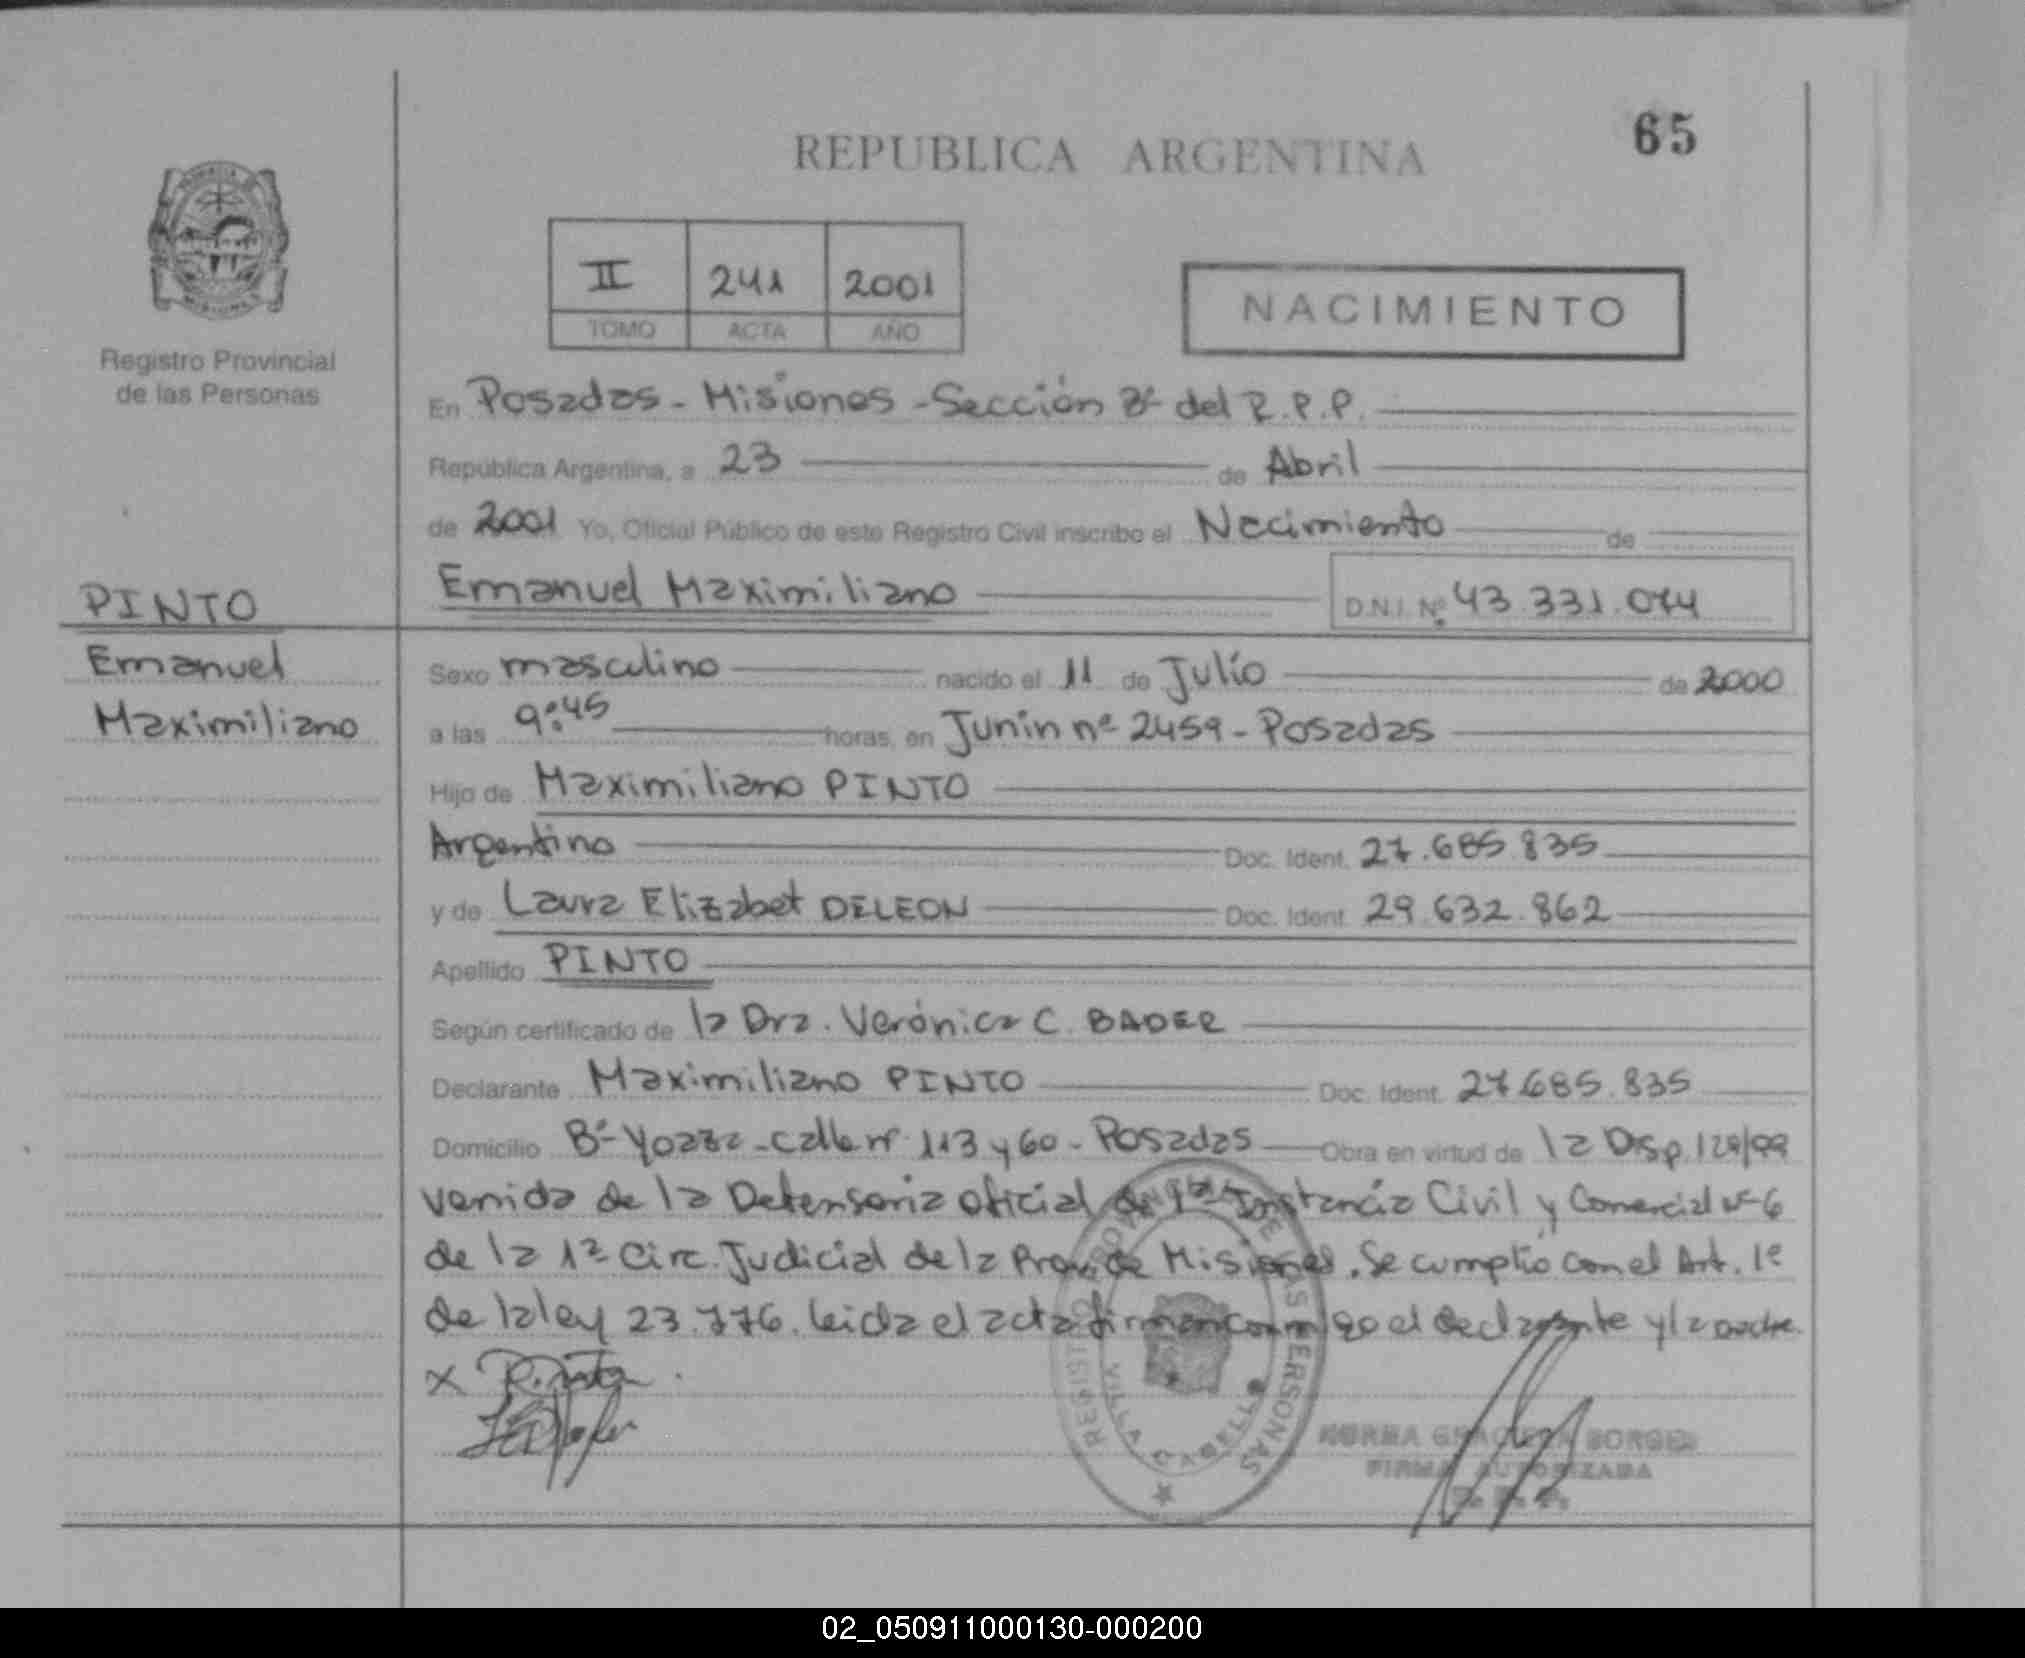 REPUBLICA ARGENTINA
65
II 241 2001
TOMO ACTA AÑO
NACIMIENTO
Registro Provincial
de las Personas
En Posadas - Misiones - Sección 8ª del R.P.P.
República Argentina, a 23 de Abril
de 2001 Yo, Oficial Público de este Registro Civil inscribo el Nacimiento de
Emanuel Maximiliano D.N.I. Nº 43.331.074
PINTO
Emanuel
Maximiliano
Sexo masculino nacido el 11 de Julio de 2000
a las 9:45 horas, en Junín nº 2459 - Posadas
Hijo de Maximiliano PINTO
Argentino Doc. Ident. 27.685.835
y de Laura Elizabet DELEON Doc. Ident. 29.632.862
Apellido PINTO
Según certificado de la Dra. Verónica C. BADER
Declarante Maximiliano PINTO Doc. Ident. 27.685.835
Domicilio Bº Yoaza - calle nº 113 y 60 - Posadas Obra en virtud de la Disp. 129/99
venida de la Defensoria oficial de 1ª Instancia Civil y Comercial nº 6
de la 1ª Circ. Judicial de la Prov. de Misiones. Se cumplió con el Art. 1º
de la ley 23.776. leida el acta firman conmigo el declarante y la madre.
x
REGISTRO PROVINCIAL DE LAS PERSONAS
VILLA CABELLO
NORMA GRACIELA BORGES
FIRMA AUTORIZADA
R. P. P.
02_050911000130-000200